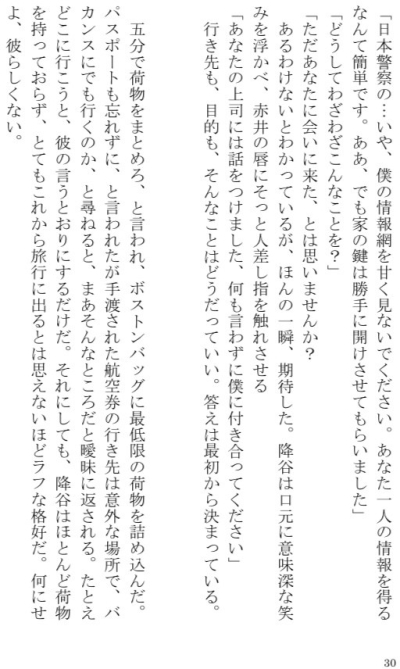 「日本警察の…いや、僕の情報網を甘く見ないでください。あなた一人の情報を得る
なんて簡単です。ああ、でも家の鍵は勝手に開けさせてもらいました」
「どうしてわざわざこんなことを？」
「ただあなたに会いに来た、とは思いませんか？
　あるわけないとわかっているが、ほんの一瞬、期待した。降谷は口元に意味深な笑
みを浮かべ、赤井の唇にそっと人差し指を触れさせる
「あなたの上司には話をつけました、何も言わずに僕に付き合ってください」
　行き先も、目的も、そんなことはどうだっていい。答えは最初から決まっている。
　五分で荷物をまとめろ、と言われ、ボストンバッグに最低限の荷物を詰め込んだ。
パスポートも忘れずに、と言われたが手渡された航空券の行き先は意外な場所で、バ
カンスにでも行くのか、と尋ねると、まあそんなところだと曖昧に返される。たとえ
どこに行こうと、彼の言うとおりにするだけだ。それにしても、降谷はほとんど荷物
を持っておらず、とてもこれから旅行に出るとは思えないほどラフな格好だ。何にせ
よ、彼らしくない。
30